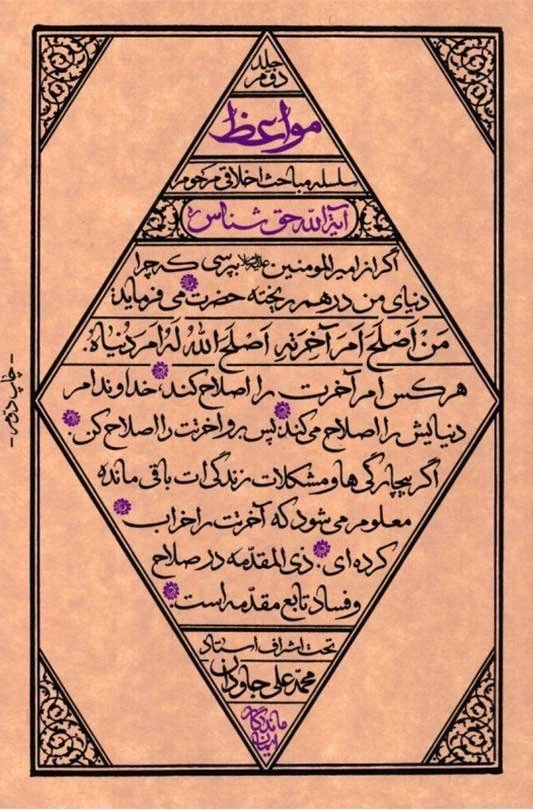 جلد
دوم
مواعظ
سلسله مباحث اخلاقی مرحوم
آیة الله حق شناس ره
اگر از امیرالمومنین علیه‌السلام بپرسی که چرا
دنیای من درهم ریخته حضرت می فرماید:
مَن اَصلَحَ اَمرَ آخِرَتِهِ اَصلَحَ اللهُ لَهُ اَمرَ دُنیاهُ.
هر کس امر آخرت را اصلاح کند، خداوند امر
دنیایش را اصلاح می کند، پس برو آخرتت را اصلاح کن.
اگر بیچارگی ها و مشکلات زندگی ات باقی مانده
معلوم می شود که آخرتت را خراب
کرده ای. ذی المقدمه در صلاح
و فساد تابع مقدّمه است.
تحت اشراف استاد
محمد علی جاودان
ماندگار
- چاپ دوم -